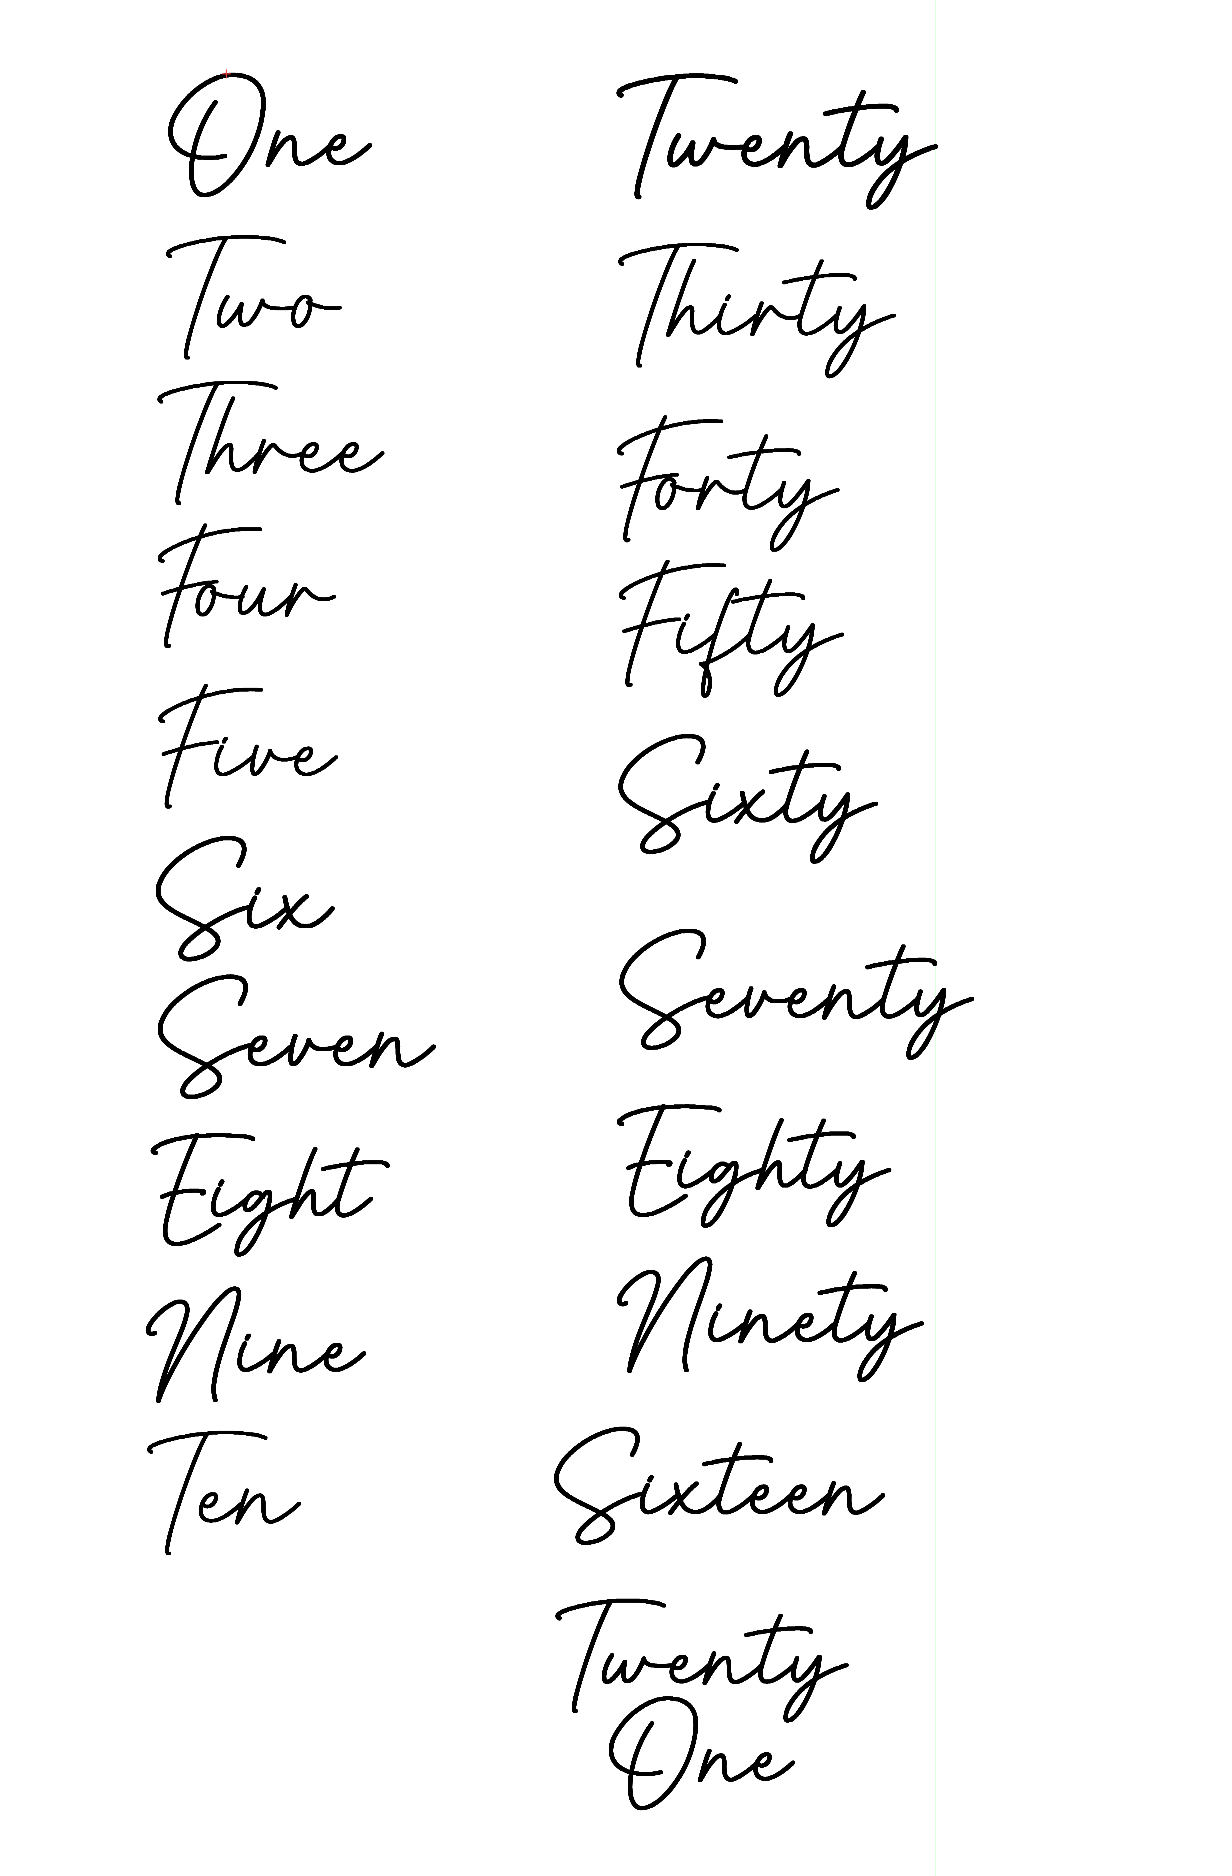 One
Two
Three
Four
Five
Six
Seven
Eight
Nine
Ten
Twenty
Thirty
Forty
Fifty
Sixty
Seventy
Eighty
Ninety
Sixteen
Twenty
One